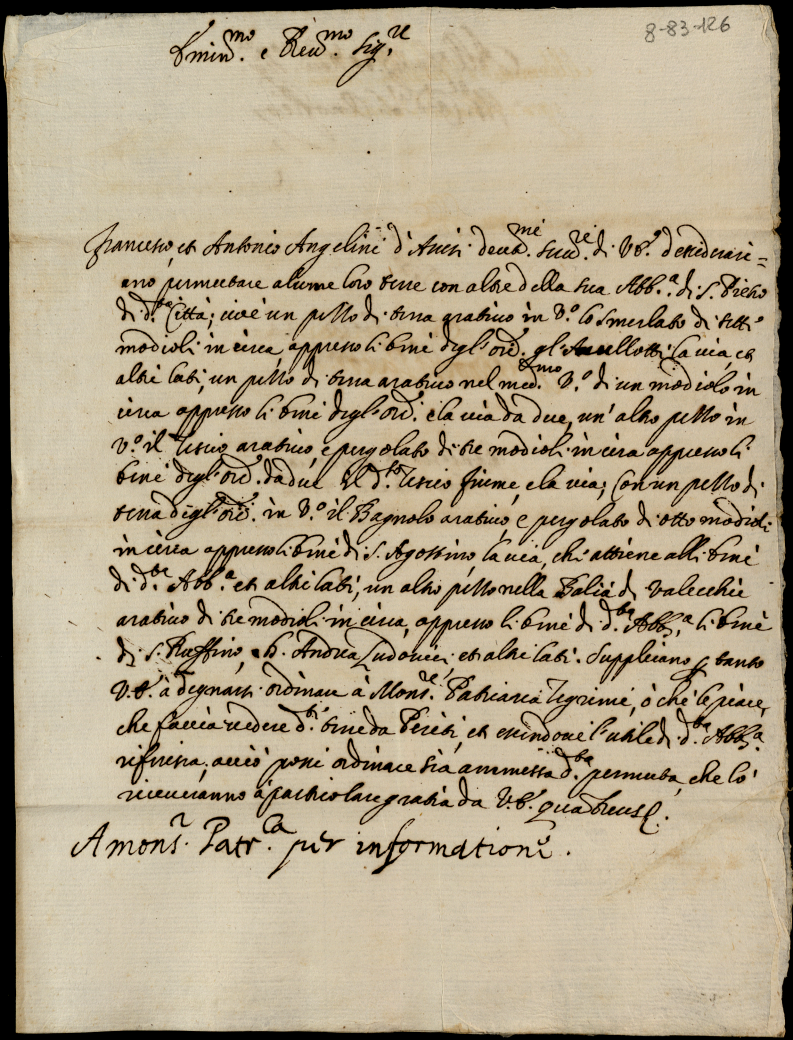 8-83-126
Emin.mo e Reu.mo Sig.re
Francesco, et Antonio Angelini d'Assisi deuot.mi seru.ri di V.E. desiderari=
ano permutare alcune loro terre con altre della sua Abb.a di S. Pietro
di d.a Città; cioè un pezzo di terra aratiuo in V.o lo Smerlato di sette
modioli in circa, appresso li beni degl'ored. gl' la uia, et
altri lati, un pezzo di terra aratiuo nel med.mo V.o di un modiolo in
circa appresso li beni degl'ored. e la uia da due, un'altro pezzo in
V.o il Tescio aratiuo, e pergolato di tre modioli in circa appresso li
beni degl'ored. da due il d.to Tescio fiume, e la uia; Con un pezzo di
terra degl'ored. in V.o il Bagnolo aratiuo, e pergolato di otto modioli
in circa appresso li beni di S. Agostino, la uia, che attiene alli beni
di d.a Abb.a et altri lati, un altro pezzo nella Balia di Valecchie
aratiuo di tre modioli in circa, appresso li beni di d.ta Abb.a, li beni
di S. Ruffino, Andrea Ludouici, et altri lati. Supplicano p tanto
V.E. à degnarsi ordinare à Mons.re Patriarca Tegrimi, ò chi le piace,
che faccia uedere d.i beni da Periti, et essendoui l'utile di d.ta Abb.a
rifferisca, acciò possi ordinare sia ammessa d.ta permuta, che lo
riceueranno à particolare gratia da V.E. qua Deus &.
A mons.r Patr.ca per informatione.